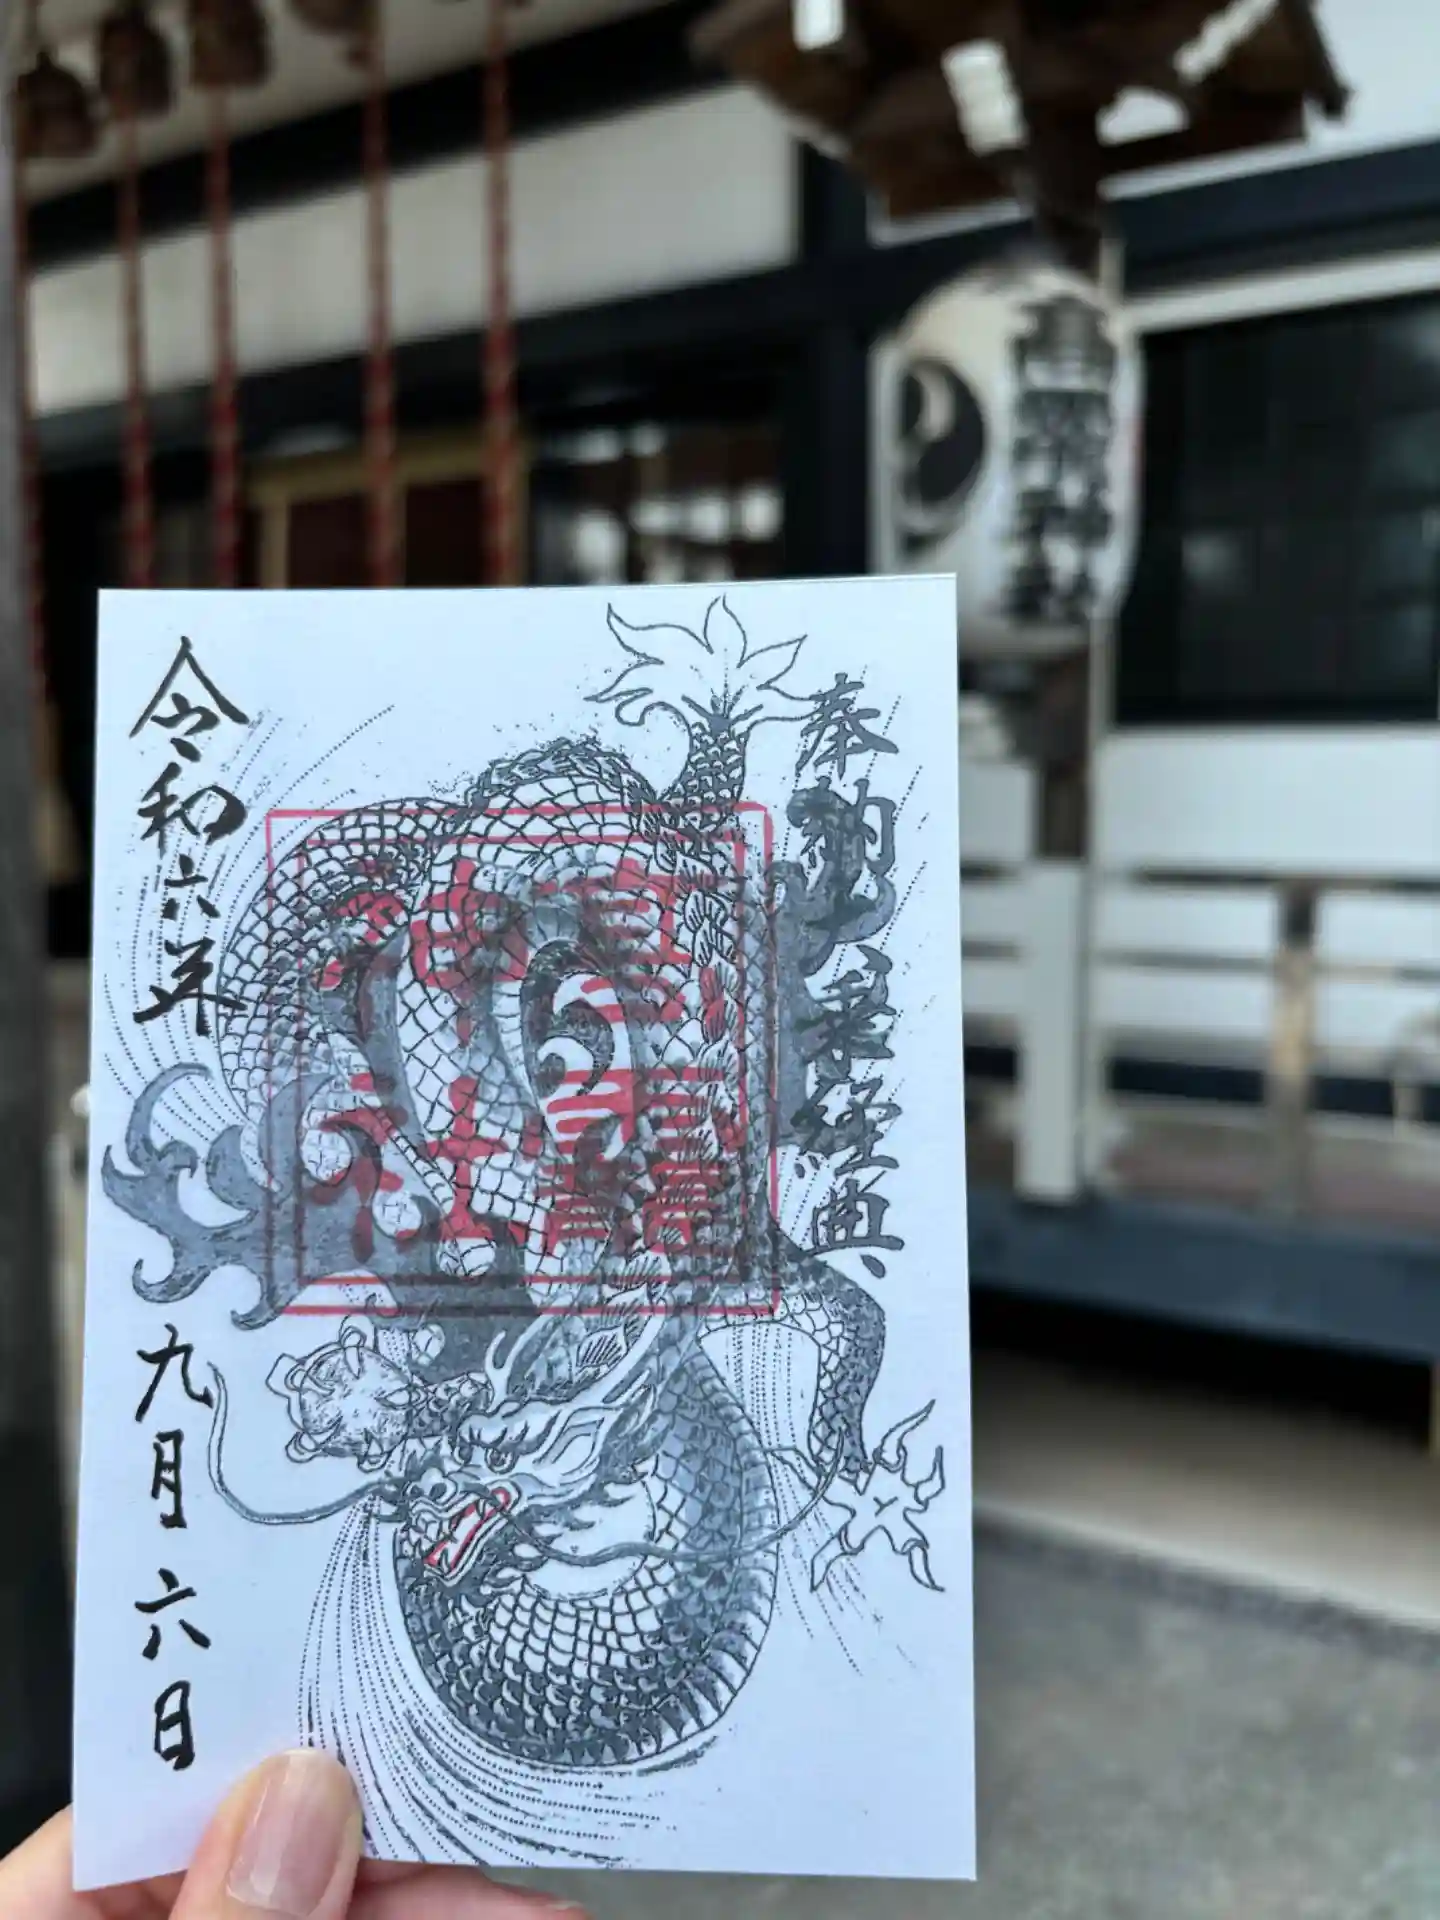 奉納大乗経典
高龍
神社
令和六年
九月六日